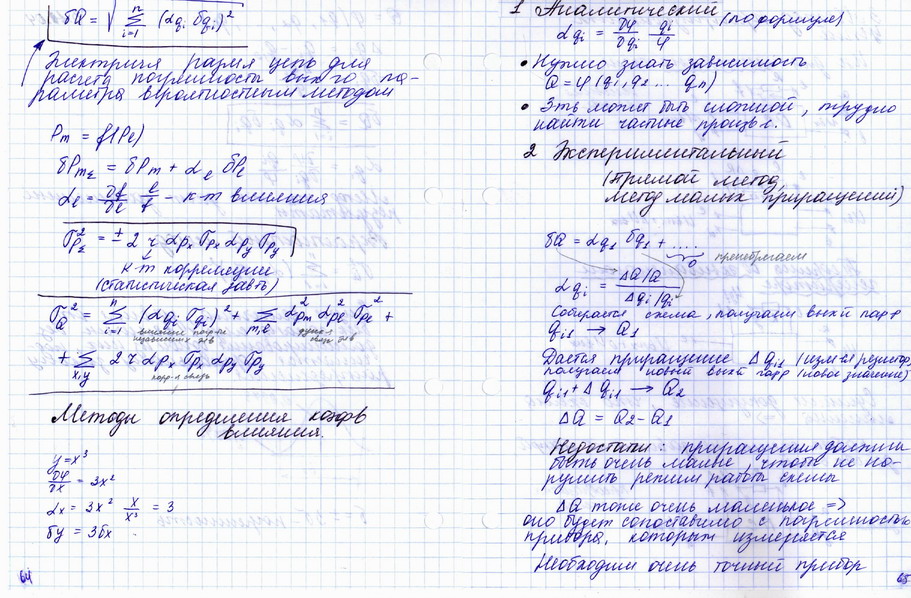 δQ = √ Σ (αqi δqi)²
n
i=1
расчета погрешности вых-го па-
раметра вероятностным методом
Pm = f(Pe)
δPmΣ = δPm + αe δPe
αe = ∂f/∂e e/f - к-т влияния
σPΣ² = ± 2 r αPx σPx αPy σPy
к-т корреляции
(статистическая завть)
σQ² = Σ (αqi σqi)² + Σ αpm² αpe² σpe² +
n
i=1
m,e
+ Σ 2 r αpx σpx αpy σpy
x,y
корр-я связь
Методы определения коэфов
влияния.
y = x³
∂φ/∂x = 3x²
αx = 3x² x/x³ = 3
δy = 3δx
64
1 Аналитический
αqi = ∂φ/∂qi qi/φ (по формуле)
• Нужно знать зависимость
Q = φ(q1, q2 ... qn)
• Эть может быть сложной, трудно
найти частные произв-е.
2 Экспериментальный
(прямой метод,
метод малых приращений)
δQ = αq1 δq1 + ....
0 пренебрегаем
αqi = ΔQ/Q / Δqi/qi
Собирается схема, получаем вых-й парр
qi1 → Q1
Дается приращение Δqi1
получаем новый вых-й парр (новое значение)
qi1 + Δqi1 → Q2
ΔQ = Q2 - Q1
Недостатки: приращения должны
быть очень малые, чтобы не на-
рушить режим работы схемы
ΔQ тоже очень маленькое =>
оно будет сопоставимо с погрешностью
прибора, которым измеряется
Необходим очень точный прибор
65